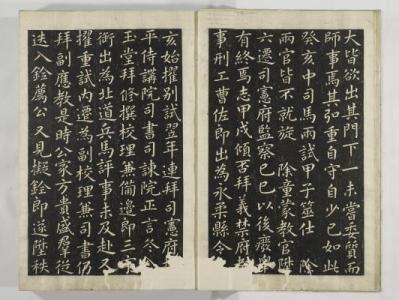 大皆欲出其門下一未嘗委質而
師事焉其弘重自守自少已如此
癸亥中司馬兩試甲子筮仕 除
兩官皆不就旋 除童蒙教官陞
六遷司憲府監察己巳以後廢舉
有終焉志甲戌傾否拜義禁府
事刑工曹佐郎出為永柔縣令
亥始擢別試翌年連拜司憲府
平侍講院司書司諫院正言冬
玉堂拜修撰校理兼備邊郎三
銜出為北道兵馬評事未及赴又
擢重試內遷為副校理兼司書仍
拜副應教是時公家方貴盛羣從
迭入銓薦公又見擬銓郎遂陞秩